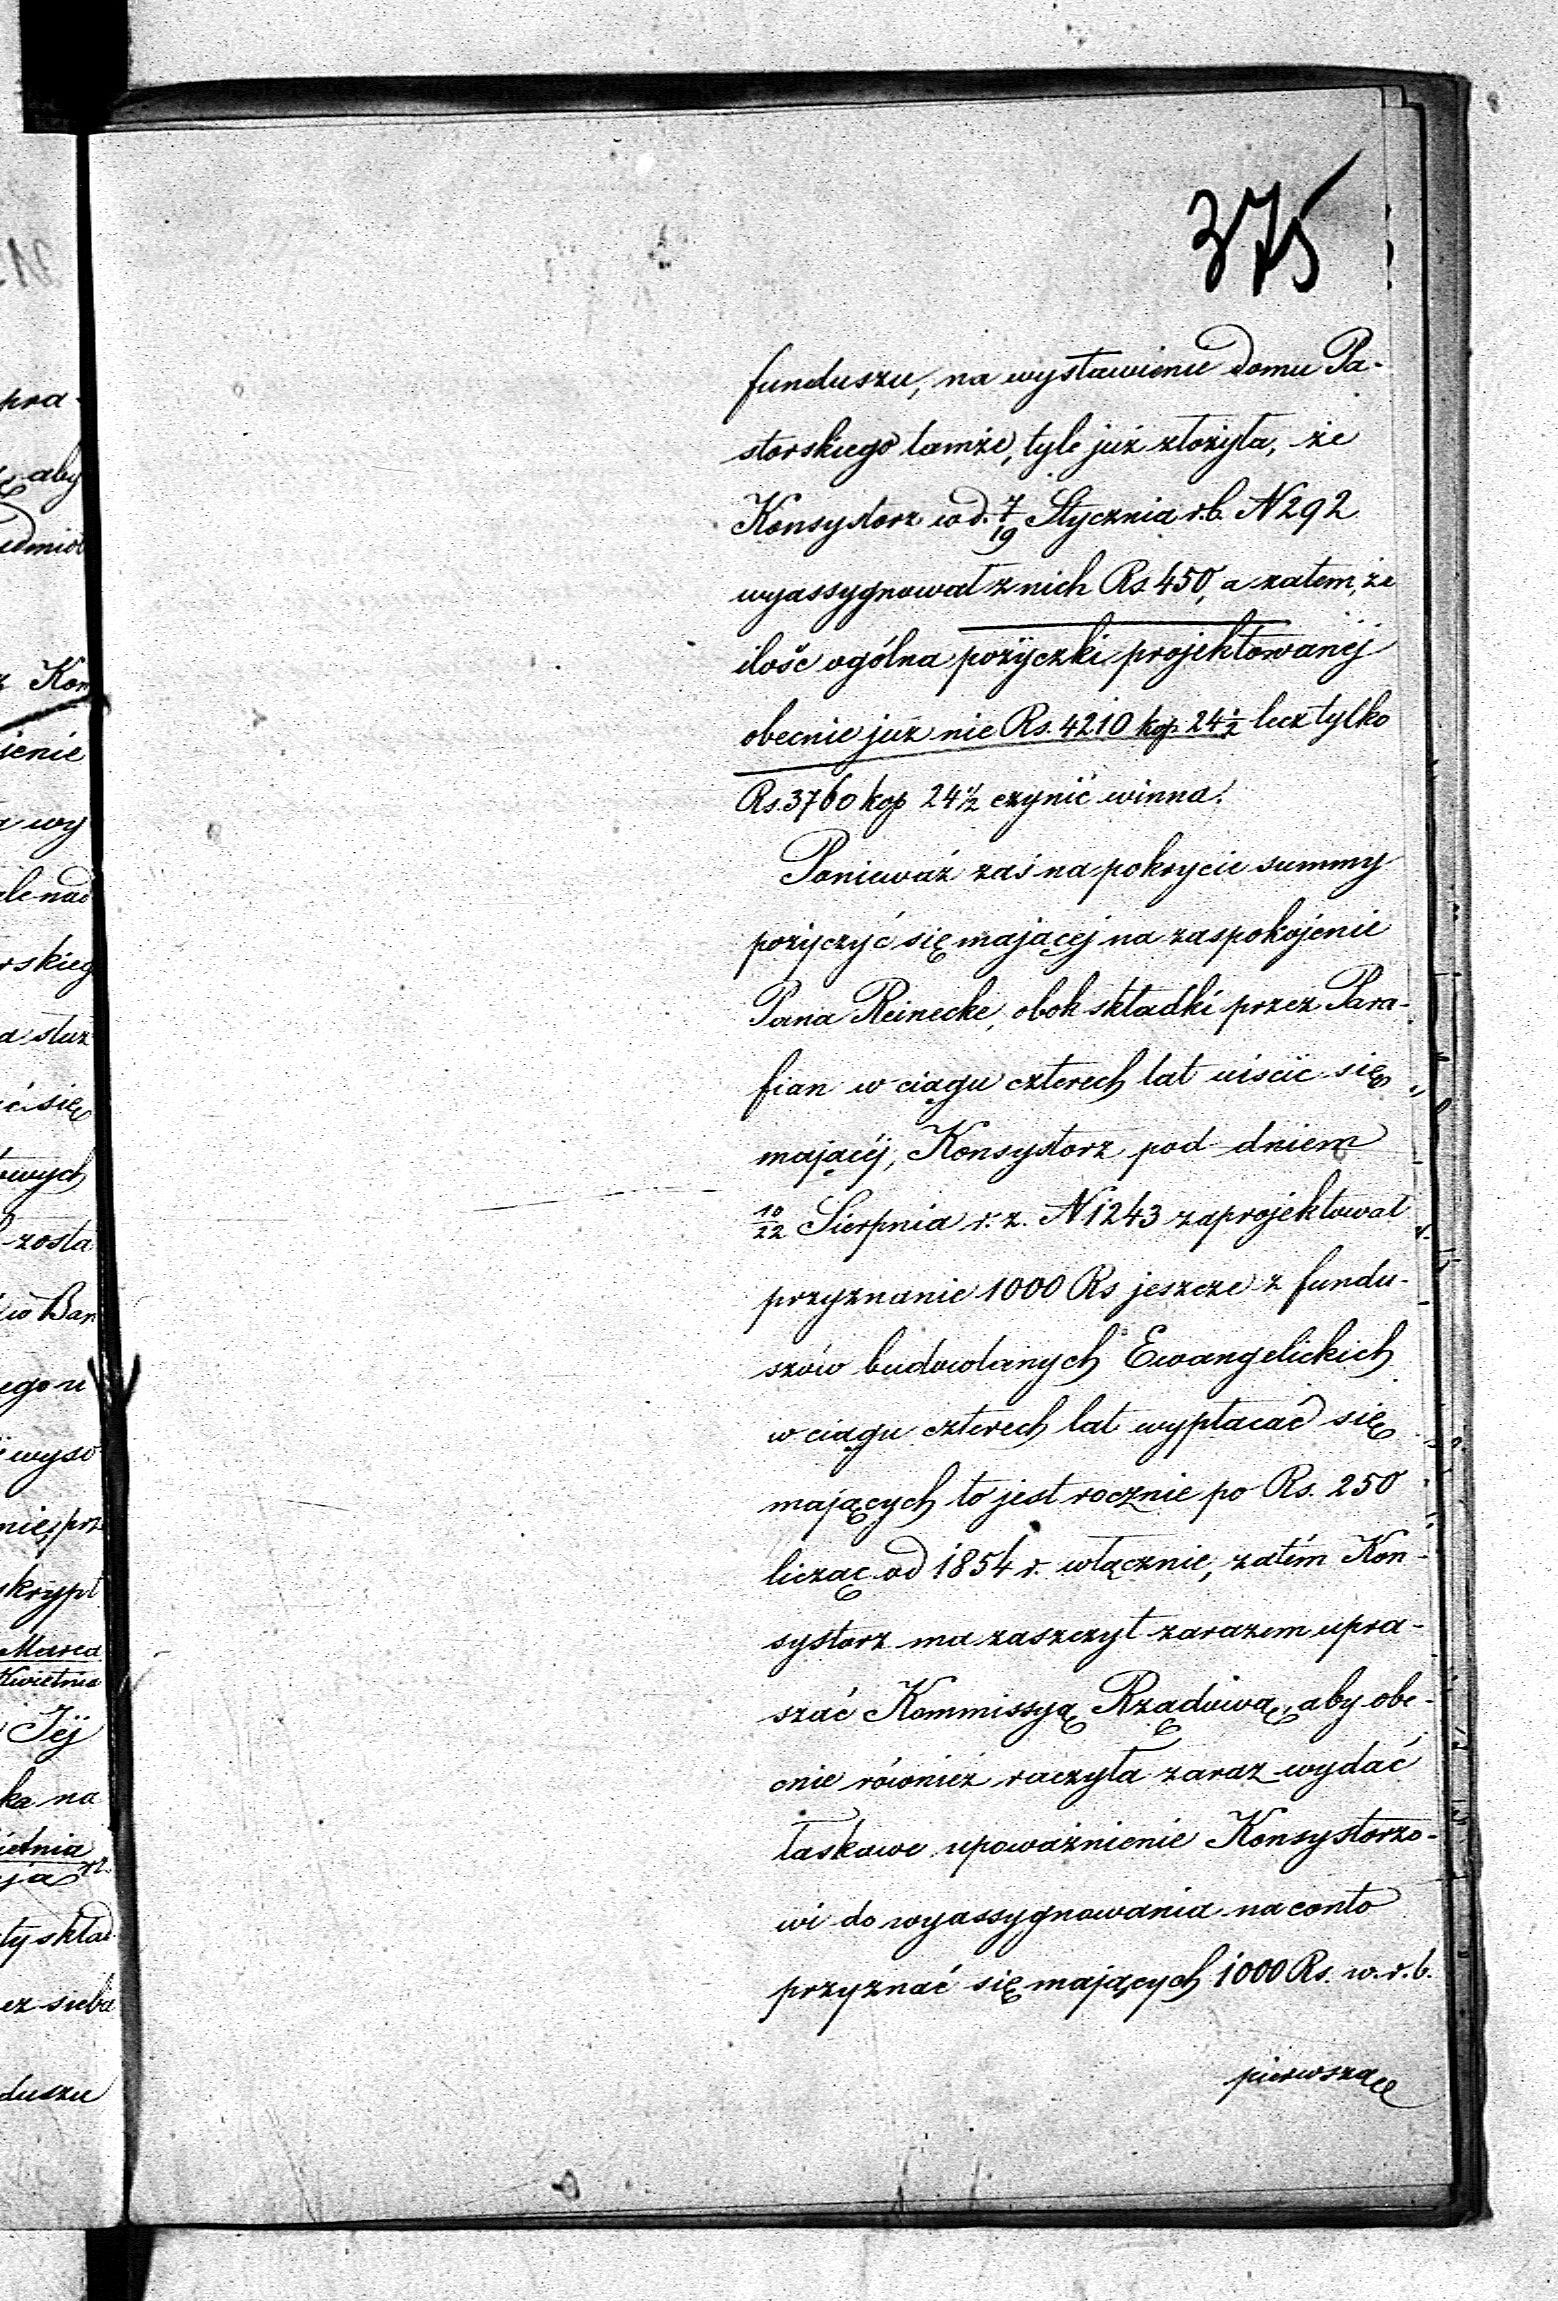 375
funduszu, na wystawienie domu Pa-
storskiego tamże, tyle już złożyła, że
Konsystorz w d. 7/19 Stycznia r.b. N 292
wyassygnował z nich Rs. 450, a zatem, że
ilość ogólna pożyczki projektowanéj
obecnie już nie Rs. 4210 kop. 24 1/2 lecz tylko
Rs. 3760 kop 24 1/2 czynić winna.
Ponieważ zaś na pokrycie summy
pożyczyć się mającej na zaspokojenie
Pana Reinecke, obok składki przez Para-
fian w ciągu czterech lat uiścić się
mającéj, Konsystorz pod dniem
10/22 Sierpnia r. z. N 1243 zaprojektował
przyznanie 1000 Rs jeszcze z fundu-
szów budowlanych Ewangelickich
w ciągu czterech lat wypłacać się
mających to jest rocznie po Rs. 250
licząc od 1854 r. włącznie, zatém Kon-
systorz ma zaszczyt zarazem upra-
szać Kommissyą Rządową, aby obe-
cnie również raczyła zaraz wydać
łaskawe upoważnienie Konsystorzo-
wi do wyassygnowania na conto
przyznać się mających 1000 Rs. w. r. b.
pierwszą
pra-
aby
z Kom
jenie
wy
ale nad
rskieg
a służ
ć się
owych
zosta
w Ban
ego u
wyso
nie, prz
skrypt
Marca
Kwietnia
Jéj
ka na
ietnia
ja
ty skład
ez sieb
duszu